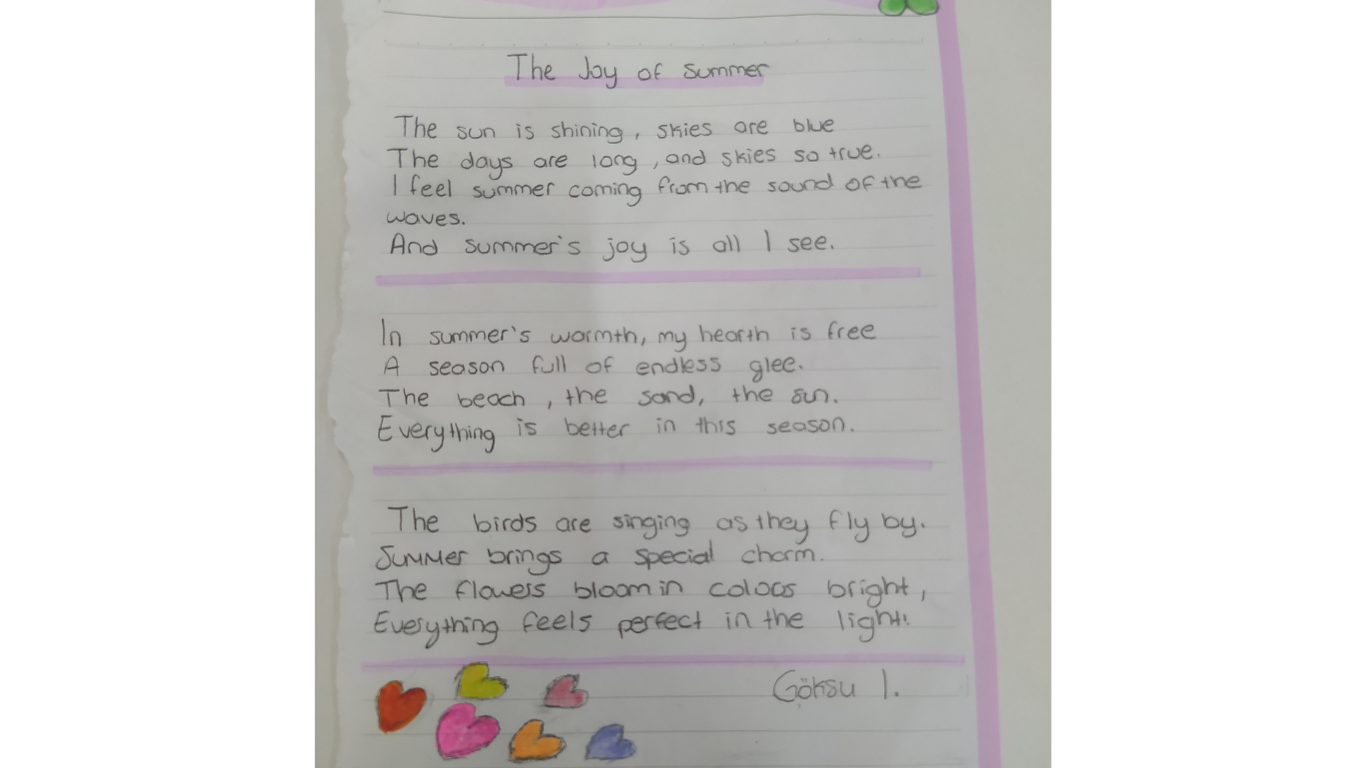 The Joy of Summer
The sun is shining, skies are blue
The days are long, and skies so true.
I feel summer coming from the sound of the
waves.
And summer's joy is all I see.
In summer's warmth, my hearth is free
A season full of endless glee.
The beach, the sand, the sun.
Everything is better in this season.
The birds are singing as they fly by.
Summer brings a special charm.
The flowess bloom in colors bright,
Everything feels perfect in the light.
Göksu I.